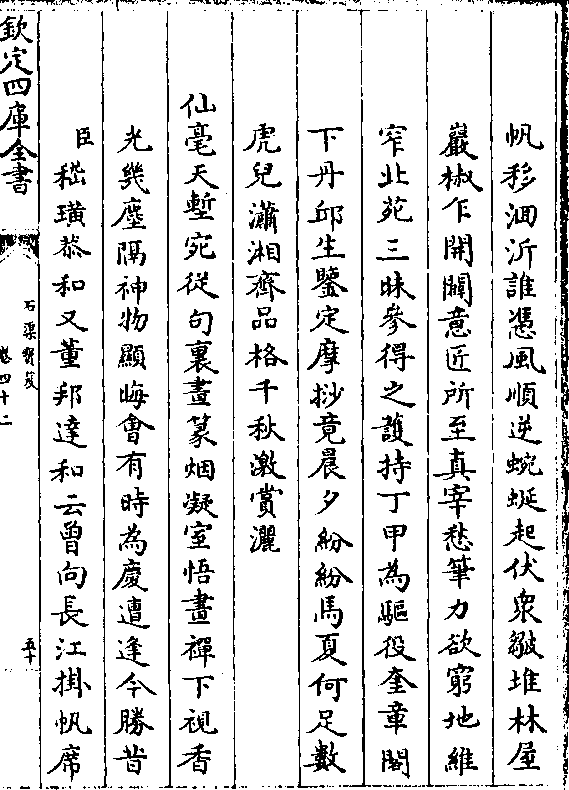 帆移洄沂誰憑風順逆蜿蜒起伏衆皴堆林屋
巖椒乍開闢意匠所至真宰愁筆力欲窮地維
窄北苑三昧參得之護持丁甲為驅役奎章閣
下丹邱生鑒定摩挱竟晨夕紛紛馬夏何足數
虎兒瀟湘齊品格千秋激賞灑
仙毫天塹宛從句裏畫篆烟凝室悟畫禪下視香
光幾塵隔神物顯晦會有時為慶遭逢今勝昔
臣嵇璜恭和又董邦達和云曾向長江掛帆席
欽定四庫全書
石渠寳笈
卷四十二
五十